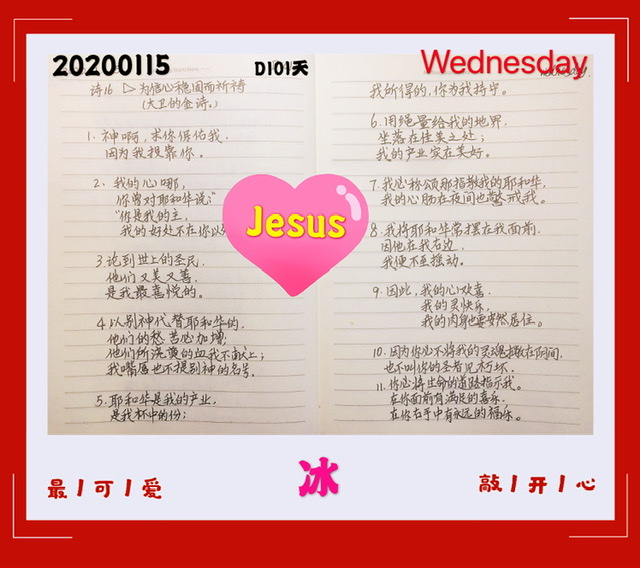 20200115
D101天
Wednesday
诗16 ▷为信心稳固而祈祷
(大卫的金诗。)
1. 神啊,求你保佑我,
因为我投靠你。
2. 我的心哪,
你曾对耶和华说:“
“你是我的主,
我的好处不在你以
3 论到世上的圣民,
他们又美又善,
是我最喜悦的。
4 以别神代替耶和华的,
他们的愁苦必加增;
他们所浇奠的血我不献上;
我嘴唇也不提别神的名号。
5. 耶和华是我的产业,
是我杯中的份;
Jesus
我所得的,你为我持守。
6. 用绳量给我的地界,
坐落在佳美之处;
我的产业实在美好。
7. 我必称颂那指教我的耶和华,
我的心肠在夜间也警戒我。
8. 我将耶和华常摆在我面前,
因他在我右边,
我便不至摇动。
9. 因此,我的心欢喜
我的灵快乐,
我的肉身也要安然居住。
10. 因为你必不将我的灵魂撇在阴间,
也不叫你的圣者见朽坏.
11. 你必将生命的道路指示我。
在你面前有满足的喜乐.
在你右手中有永远的福乐。
最|可|爱
冰
敲|开|心